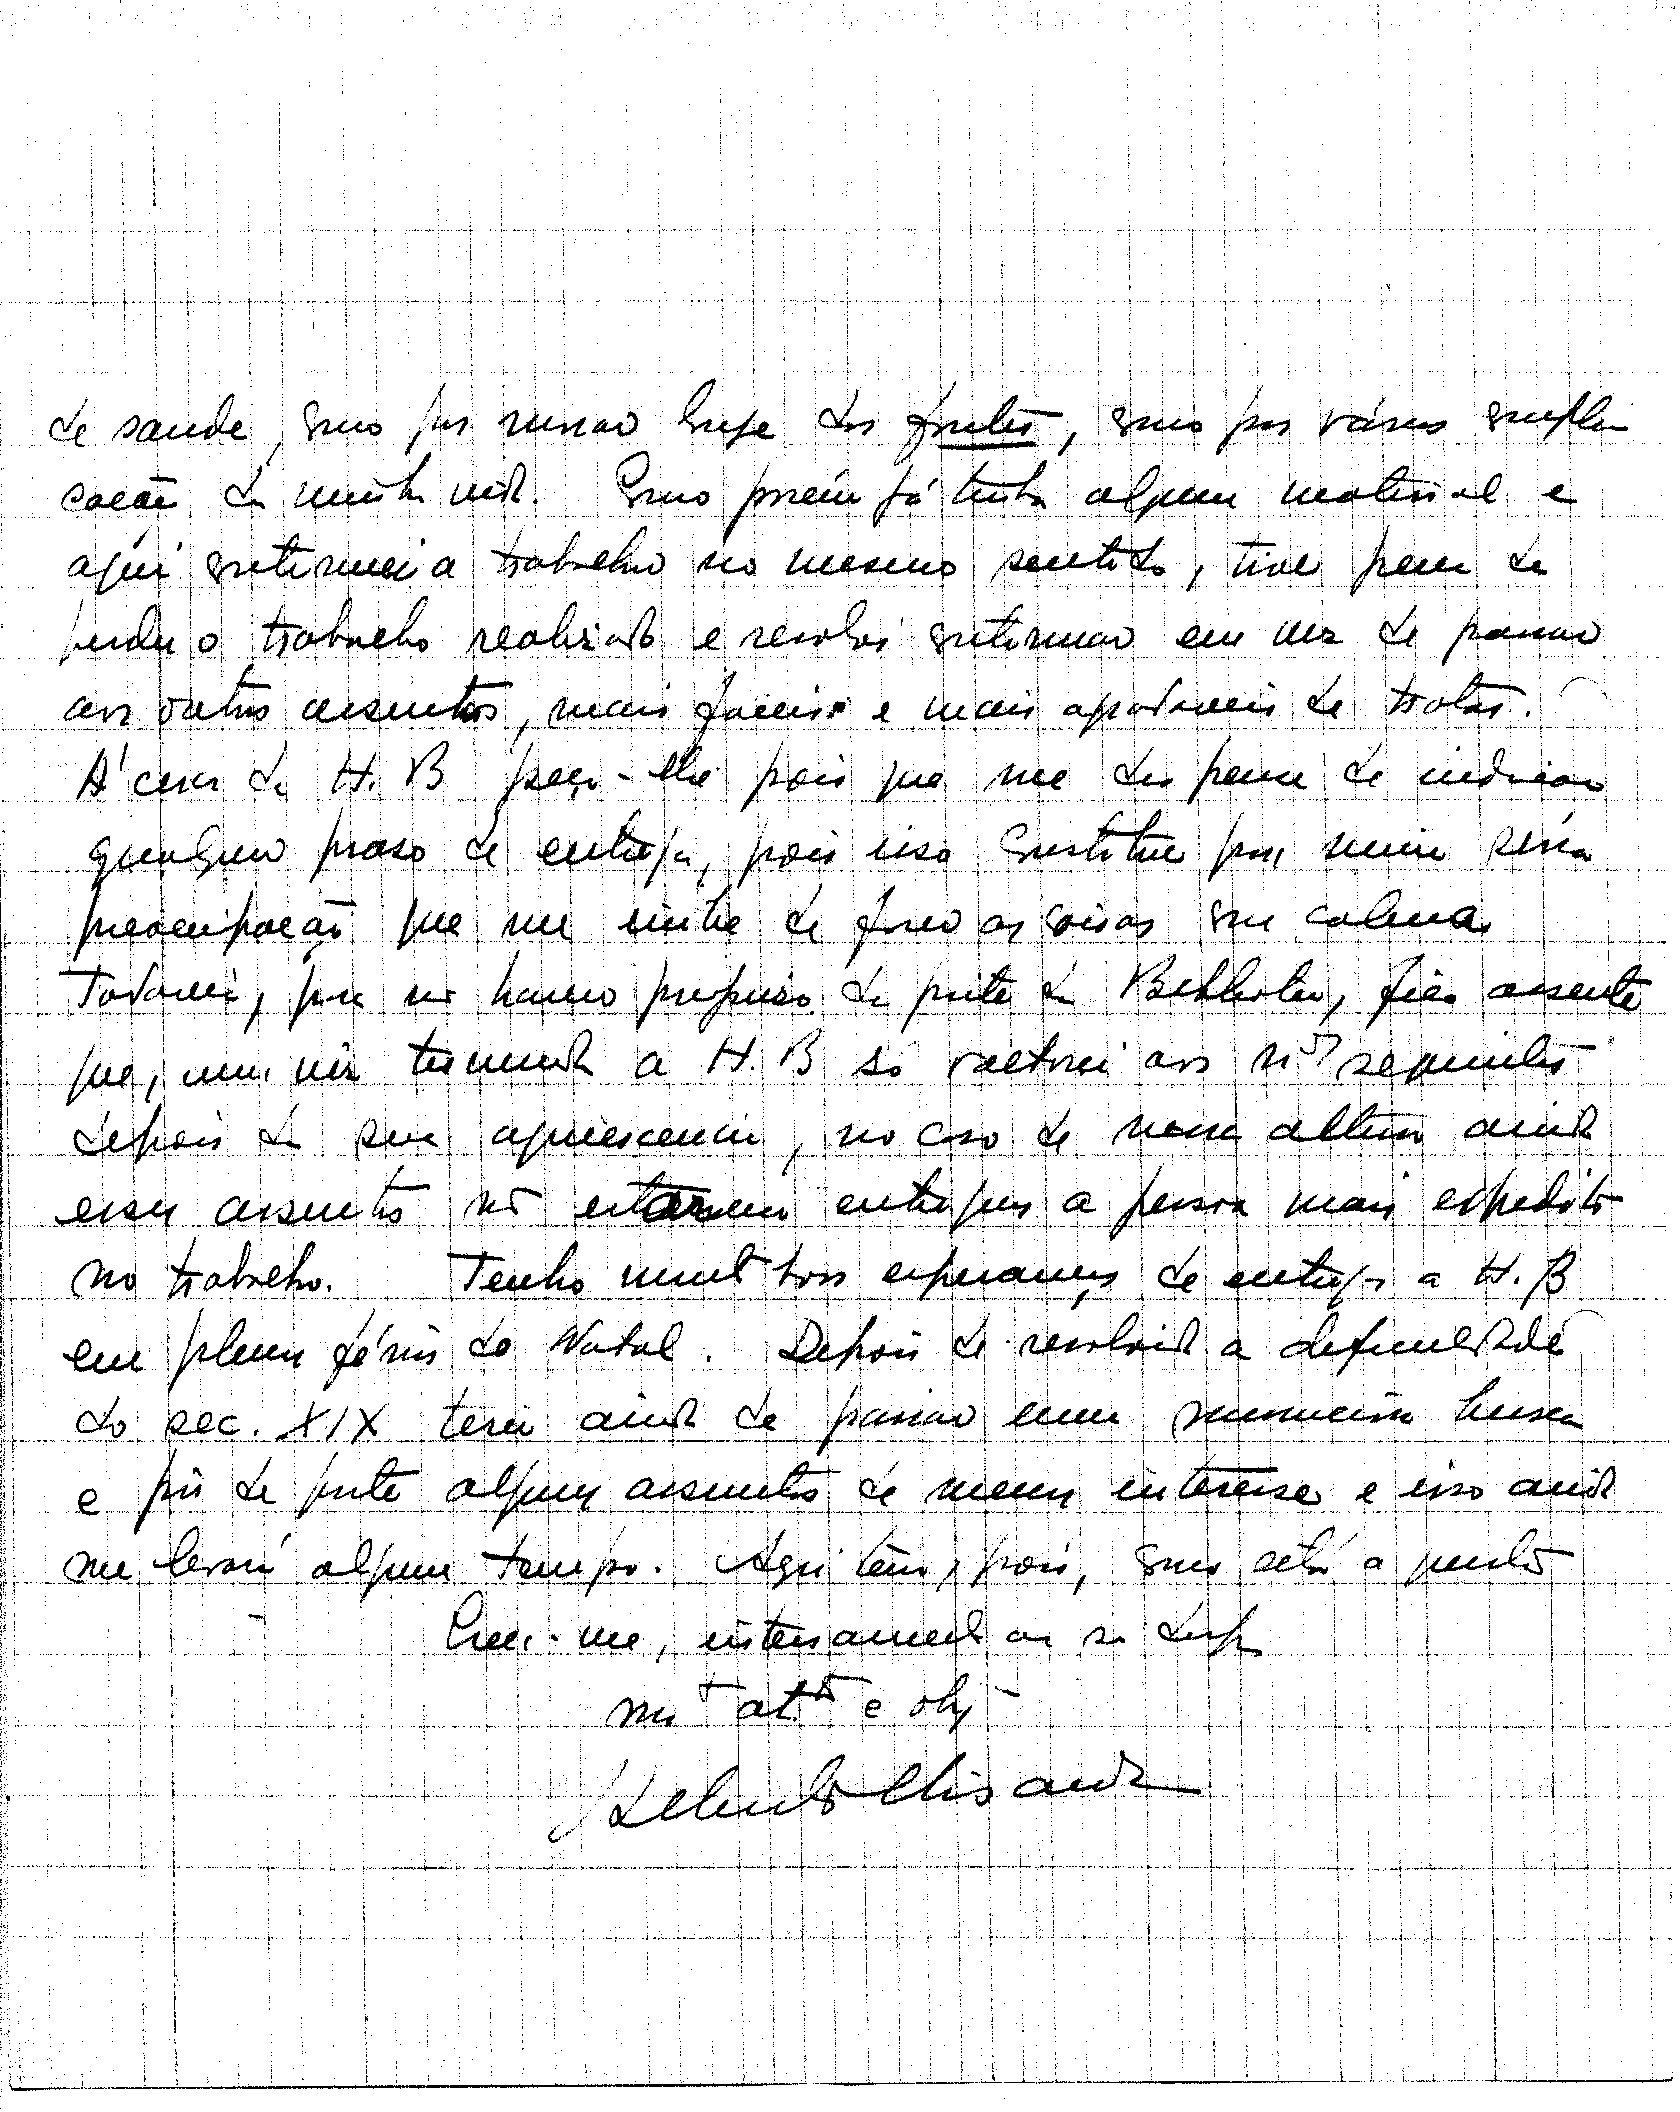 de saude, como por morar longe das fontes, como por várias compli
cações da minha vida. Como porém já tinha algum material e
aqui continuei a trabalhar no mesmo sentido, tive pena de
perder o trabalho realizado e resolvi continuar em vez de passar
aos outros assuntos, mais faceis e mais agradaveis de tratar.
Á cerca da H. B peço-lhe pois que me dispense de indicar
qualquer praso de entrega, pois isso constitue para mim séria
preocupação que me inibe de fazer as coisas com calma.
Todavia, para não haver prejuizo da parte da Biblioteca, fica assente
que, uma vez terminada a H. B só voltarei aos nos seguintes
depois da sua aquiescencia, no caso de nessa altura ainda
esses assuntos não estarem entregues a pessoa mais expedita
no trabalho. Tenho muito boas esperanças de entregar a H. B
em plenas férias do Natal. Depois de resolvida a dificuldade
do sec. XIX terei ainda de passar uma busca
e pôr de parte alguns assuntos de menos interesse e isso ainda
me levará algum tempo. Aqui tem, pois, como está a questão
Creia-me, inteiramente ao seu dispor
mto atto e obg